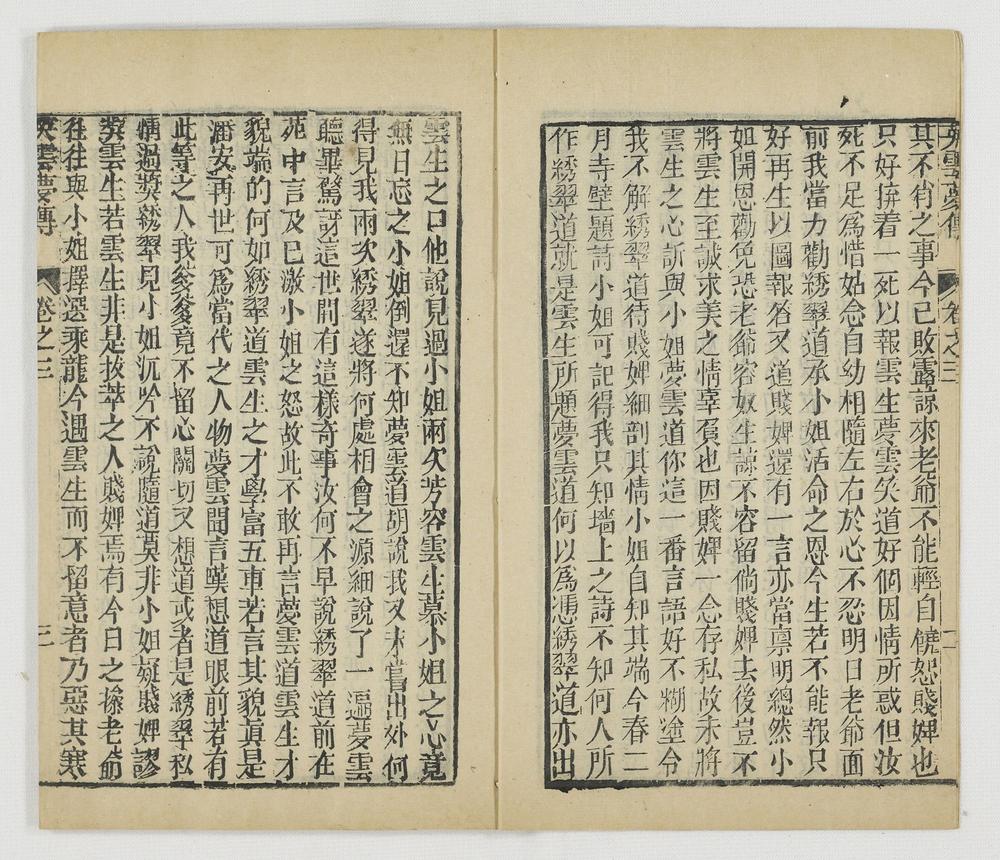 英雲夢傳 卷之三 二
其不肖之事今已敗露諒來老爺不能輕自饒恕賤婢也
只好拚着一死以報雲生夢雲笑道好個因情所惑但汝
死不足爲惜姑念自幼相隨左右於心不忍明日老爺面
前我當力勸綉翠道承小姐活命之恩今生若不能報只
好再生以圖報答又道賤婢還有一言亦當禀明總然小
姐開恩勸免恐老爺容奴生諒不容留倘賤婢去後豈不
將雲生至誠求美之情辜負也因賤婢一念存私故未將
雲生之心訴與小姐夢雲道你這一番言語好不糊塗令
我不解綉翠道待賤婢細剖其情小姐自知其端今春二
月寺壁題詩小姐可記得我只知墻上之詩不知何人所
作綉翠道就是雲生所題夢雲道何以爲憑綉翠道亦出
雲生之口他說見過小姐兩次芳容雲生慕小姐之心竟
無日忘之小姐倒還不知夢雲道胡說我又未嘗出外何
得見我兩次綉翠遂將何處相會之源細說了一遍夢雲
聽畢驚訝道這世間有這樣奇事汝何不早說綉翠道前在
苑中言及已激小姐之怒故此不敢再言夢雲道雲生才
貌端的何如綉翠道雲生之才學富五車若言其貌眞是
潘安再世可爲當代之人物夢雲聞言嘆想道眼前若有
此等之人我爹爹竟不留心關切又想道或者是綉翠私
情過奬綉翠見小姐沉吟不說隨道莫非小姐疑賤婢謬
奬雲生若雲生非是拔萃之人賤婢焉有今日之禄老爺
往往與小姐擇選乘龍今遇雲生而不留意者乃惡其寒
英雲夢傳 卷之三 三